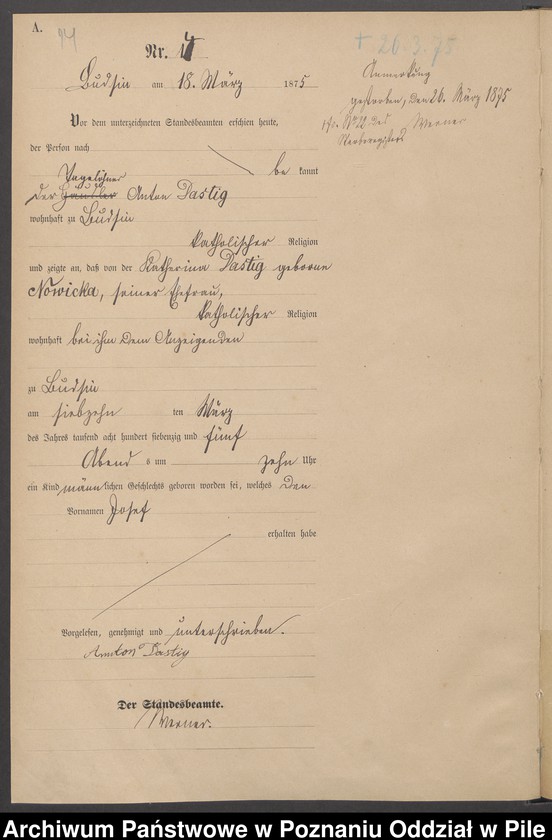 A.
Nr. 14
+ 26.3.75
Anmerkung
Budsin am 18. März 1875
gestorben, den 26. März 1875
des
Werner
Sterberegisters
Vor dem unterzeichneten Standesbeamten erschien heute,
der Person nach
be kannt
Tagelöhner
der Anton Dastig
wohnhaft zu Budsin
katholischer Religion
und zeigte an, daß von der Katherina Dastig geborne
Nowicka, seiner Ehefrau,
katholischer Religion
wohnhaft bei ihm dem Anzeigenden
zu Budsin
am siebzehn ten März
des Jahres tausend acht hundert siebenzig und fünf
Abend s um zehn Uhr
ein Kind männ lichen Geschlechts geboren worden sei, welches den
Vornamen Josef
erhalten habe
Vorgelesen, genehmigt und unterschrieben.
Anton Dastig
Der Standesbeamte.
Werner.
Archiwum Państwowe w Poznaniu Oddział w Pile